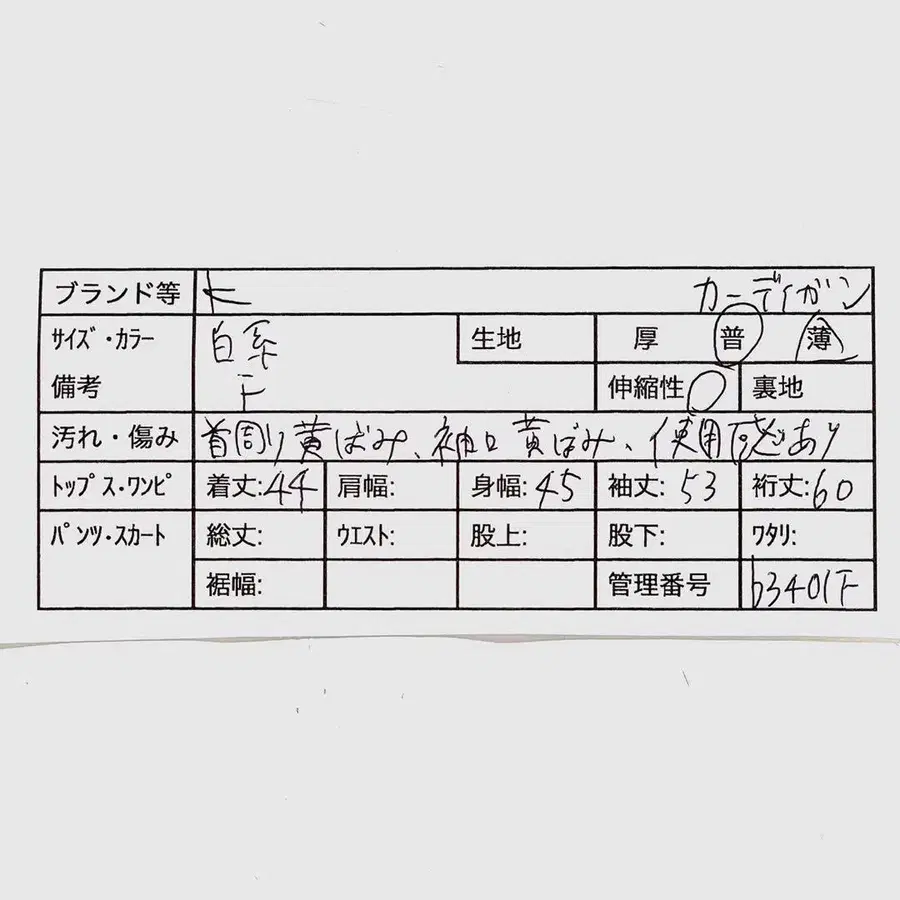 ブランド等 カーディガン
サイズ・カラー 白系 生地 厚 普 薄
備考 F 伸縮性 ○ 裏地
汚れ・傷み 首周り黄ばみ、袖口黄ばみ、使用感あり
トップス・ワンピ 着丈:44 肩幅: 身幅:45 袖丈:53 裄丈:60
パンツ・スカート 総丈: ウエスト: 股上: 股下: ワタリ:
裾幅: 管理番号 b3401F